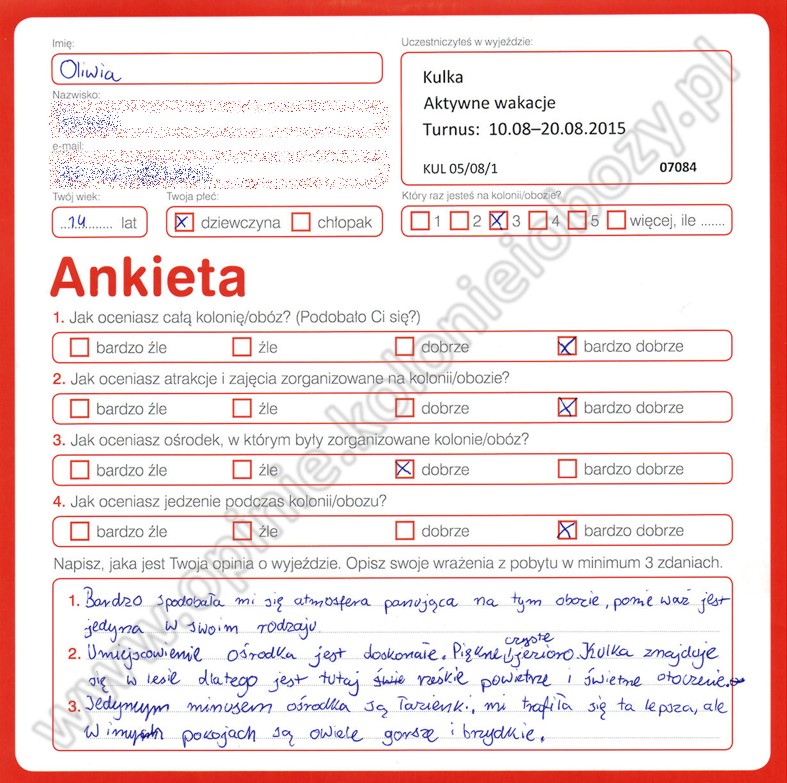 Imię:
Oliwia
Nazwisko:
e-mail:
Twój wiek:
14 lat
Twoja płeć:
dziewczyna chłopak
Uczestniczyłeś w wyjeździe:
Kulka
Aktywne wakacje
Turnus: 10.08–20.08.2015
KUL 05/08/1 07084
Który raz jesteś na kolonii/obozie?
1 2 3 4 5 więcej, ile .......
Ankieta
1. Jak oceniasz całą kolonię/obóz? (Podobało Ci się?)
bardzo źle źle dobrze bardzo dobrze
2. Jak oceniasz atrakcje i zajęcia zorganizowane na kolonii/obozie?
bardzo źle źle dobrze bardzo dobrze
3. Jak oceniasz ośrodek, w którym były zorganizowane kolonie/obóz?
bardzo źle źle dobrze bardzo dobrze
4. Jak oceniasz jedzenie podczas kolonii/obozu?
bardzo źle źle dobrze bardzo dobrze
Napisz, jaka jest Twoja opinia o wyjeździe. Opisz swoje wrażenia z pobytu w minimum 3 zdaniach.
1. Bardzo spodobała mi się atmosfera panująca na tym obozie, ponieważ jest
jedyna w swoim rodzaju.
2. Umiejscowienie ośrodka jest doskonałe. Piękne czyste jezioro. Kulka znajduje
się w lesie dlatego jest tutaj świe rześkie powietrze i świetne otoczenie.
3. Jedynym minusem ośrodka są łazienki, mi trafiła się ta lepsza, ale
w innych pokojach są owiele gorsze i brzydkie.
www.opinie.kolonieiobozy.pl